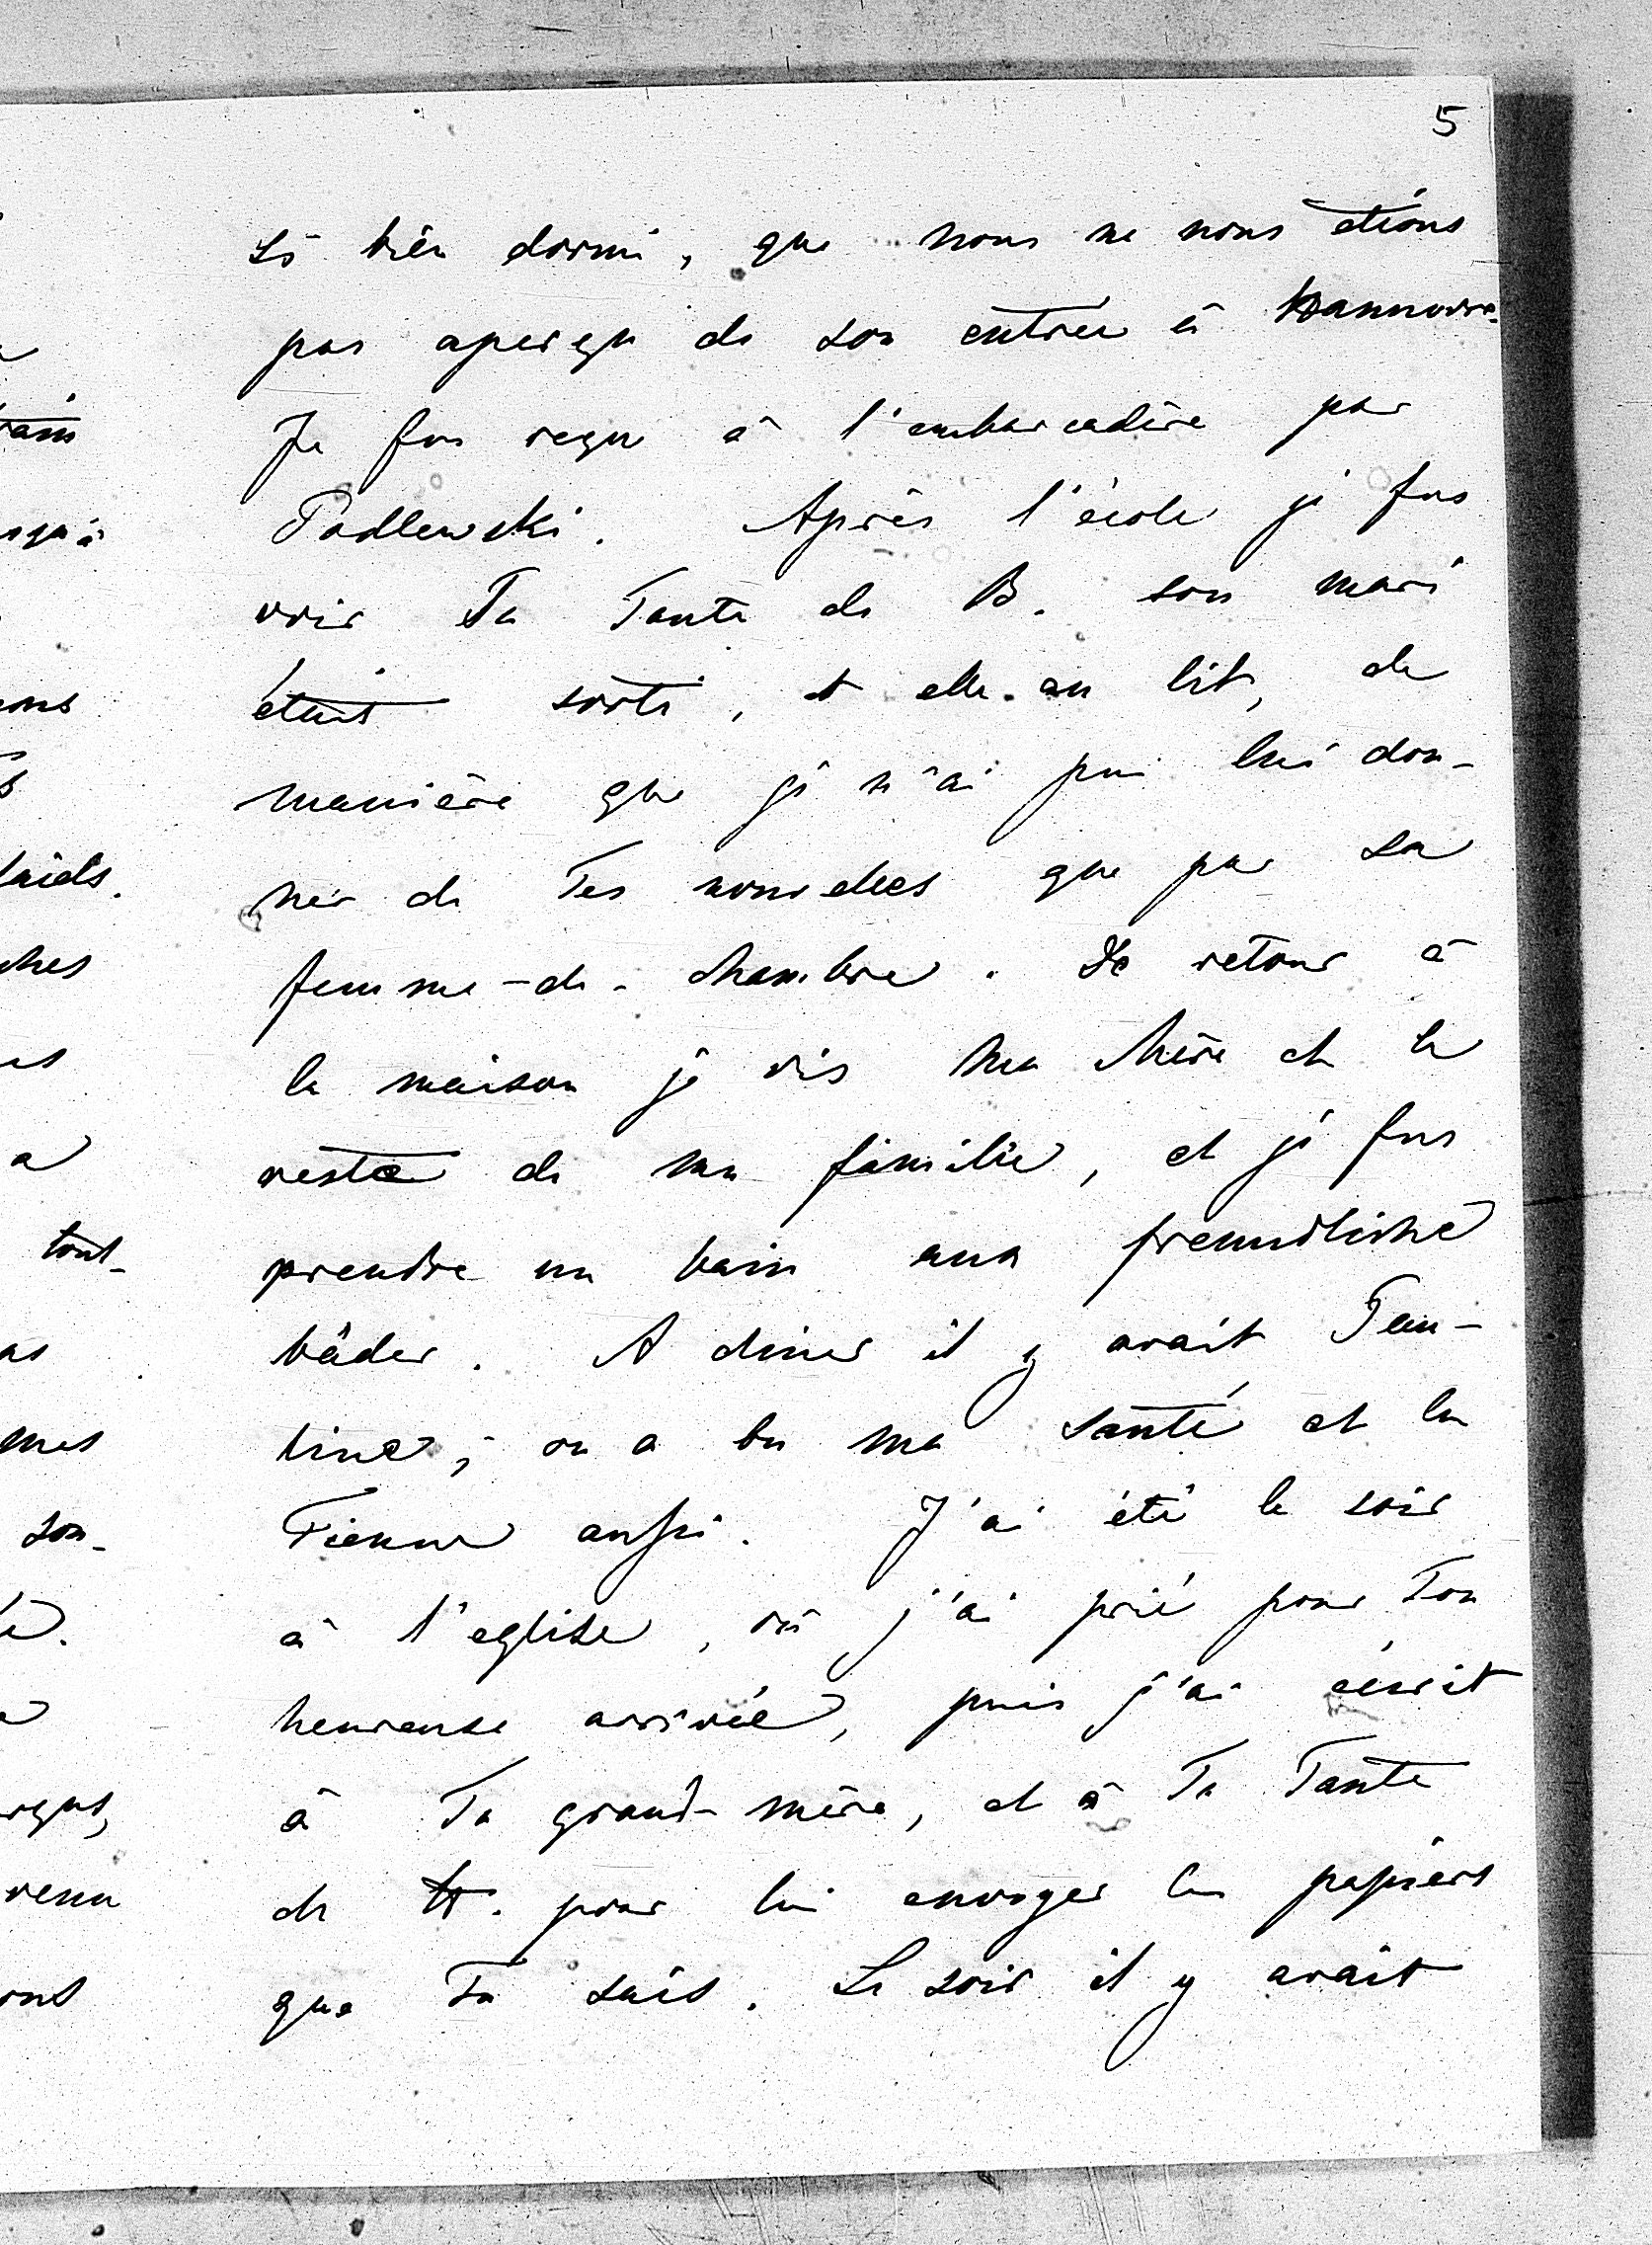 5
si bien dormi, que nous ne nous étions
pas aperçu de son entrée à Hannovre.
Je fus reçu à l'embarcadère par
Podlewski. Après l'école je fus
voir Ta Tante de B. son mari
était sorti, et elle au lit, de
manière que je n'ai pu lui don-
ner de Tes nouvelles que par sa
femme-de-chambre. De retour à
la maison je vis ma Mère et le
reste de ma famille, et je fus
prendre un bain aux freundliche
bäder. A diner il y avait Pau-
line; on a bu ma santé et la
Tienne aussi. J'ai été le soir
à l'eglise, où j'ai prié pour Ton
heureuse arrivée, puis j'ai écrit
à Ta grand-mère, et à Ta Tante
de H. pour lui envoyer les papiers
que Tu sais. Le soir il y avait